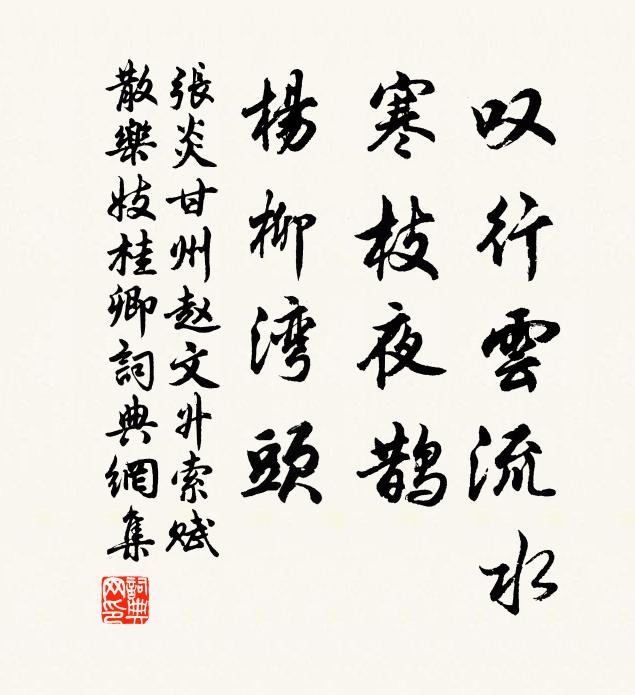 叹行雲流水
寒枝夜鹊
楊柳湾頭
張炎甘州赵文升索赋
散樂妓桂卿詞典網集
詞典网印